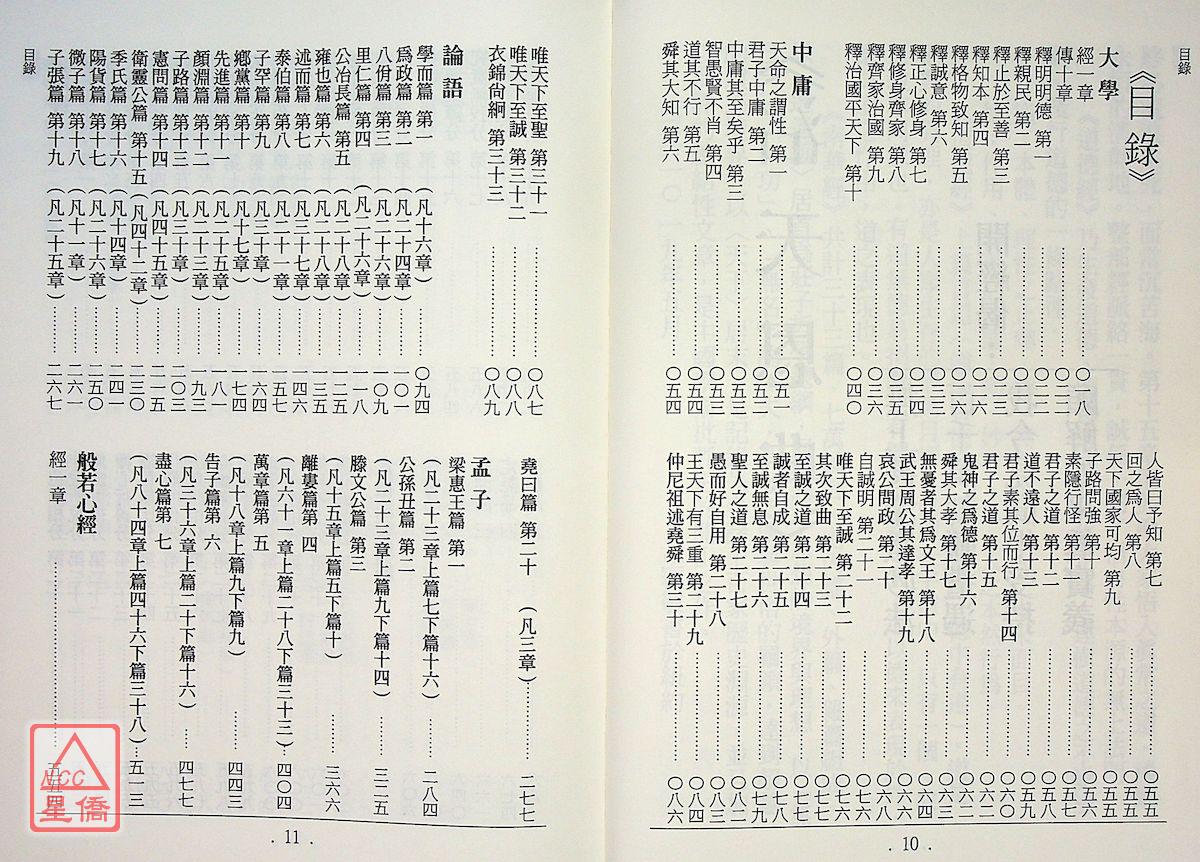 目錄
《目錄》
大學
經一章 ……〇一八
傳十章 ……〇二二
釋明明德 第一 ……〇二二
釋親民 第二 ……〇二二
釋止於至善 第三 ……〇二三
釋知本 第四 ……〇二六
釋格物致知 第五 ……〇二六
釋誠意 第六 ……〇三三
釋正心修身 第七 ……〇三四
釋修身齊家 第八 ……〇三五
釋齊家治國 第九 ……〇三六
釋治國平天下 第十 ……〇四〇
中庸
天命之謂性 第一 ……〇五一
君子中庸 第二 ……〇五二
中庸其至矣乎 第三 ……〇五三
智愚賢不肖 第四 ……〇五三
道其不行 第五 ……〇五四
舜其大知 第六 ……〇五四
人皆曰予知 第七 ……〇五五
回之為人 第八 ……〇五五
天下國家可均 第九 ……〇五五
子路問強 第十 ……〇五六
素隱行怪 第十一 ……〇五七
君子之道 第十二 ……〇五八
道不遠人 第十三 ……〇五九
君子素其位而行 第十四 ……〇六〇
君子之道 第十五 ……〇六二
鬼神之為德 第十六 ……〇六二
舜其大孝 第十七 ……
無憂者其為文王 第十八 ……〇六四
武王周公其達孝 第十九 ……〇六六
哀公問政 第二十 ……〇六八
自誠明 第二十一 ……〇七六
唯天下至誠 第二十二 ……〇七六
其次致曲 第二十三 ……〇七七
至誠之道 第二十四 ……〇七七
誠者自成 第二十五 ……
至誠無息 第二十六 ……〇七九
聖人之道 第二十七 ……〇八二
愚而好自用 第二十八 ……〇八三
王天下有三重 第二十九 ……〇八四
仲尼祖述堯舜 第三十 ……〇八六
. 10 .
目錄
唯天下至聖 第三十一 ……〇八七
唯天下至誠 第三十二 ……〇八八
衣錦尚絅 第三十三 ……〇八九
論語
學而篇 第一 (凡十六章) ……〇九四
為政篇 第二 (凡二十四章) ……一〇一
八佾篇 第三 (凡二十六章) ……一〇九
里仁篇 第四 (凡二十六章) ……一一八
公冶長篇 第五 (凡二十八章) ……一二五
雍也篇 第六 (凡二十八章) ……一三五
述而篇 第七 (凡三十七章) ……一四六
泰伯篇 第八 (凡二十一章) ……一五七
子罕篇 第九 (凡三十章) ……一六四
鄉黨篇 第十 (凡十七章) ……一七四
先進篇 第十一 (凡二十五章) ……一八一
顏淵篇 第十二 (凡二十三章) ……一九三
子路篇 第十三 (凡三十章) ……二〇三
憲問篇 第十四 (凡四十五章) ……二一五
衛靈公篇 第十五 (凡四十二章) ……二三〇
季氏篇 第十六 (凡十四章) ……二四一
陽貨篇 第十七 (凡二十六章) ……二五〇
微子篇 第十八 (凡十一章) ……二六一
子張篇 第十九 (凡二十五章) ……二六七
堯曰篇 第二十 (凡三章) ……二七七
孟子
梁惠王篇 第一
(凡二十三章上篇七下篇十六) ……二八四
公孫丑篇 第二
(凡二十三章上篇九下篇十四) ……三二五
滕文公篇 第三
(凡十五章上篇五下篇十) ……三六六
離婁篇第 四
(凡六十一 章上篇二十八下篇三十三) ……四〇四
萬章篇第 五
(凡十八章上篇九下篇九) ……四四三
告子篇第 六
(凡三十六章上篇二十下篇十六) ……四七七
盡心篇第 七
(凡八十四章上篇四十六下篇三十八) ……五一三
般若心經
經一章 ……五五四
. 11 .
NCC
星僑